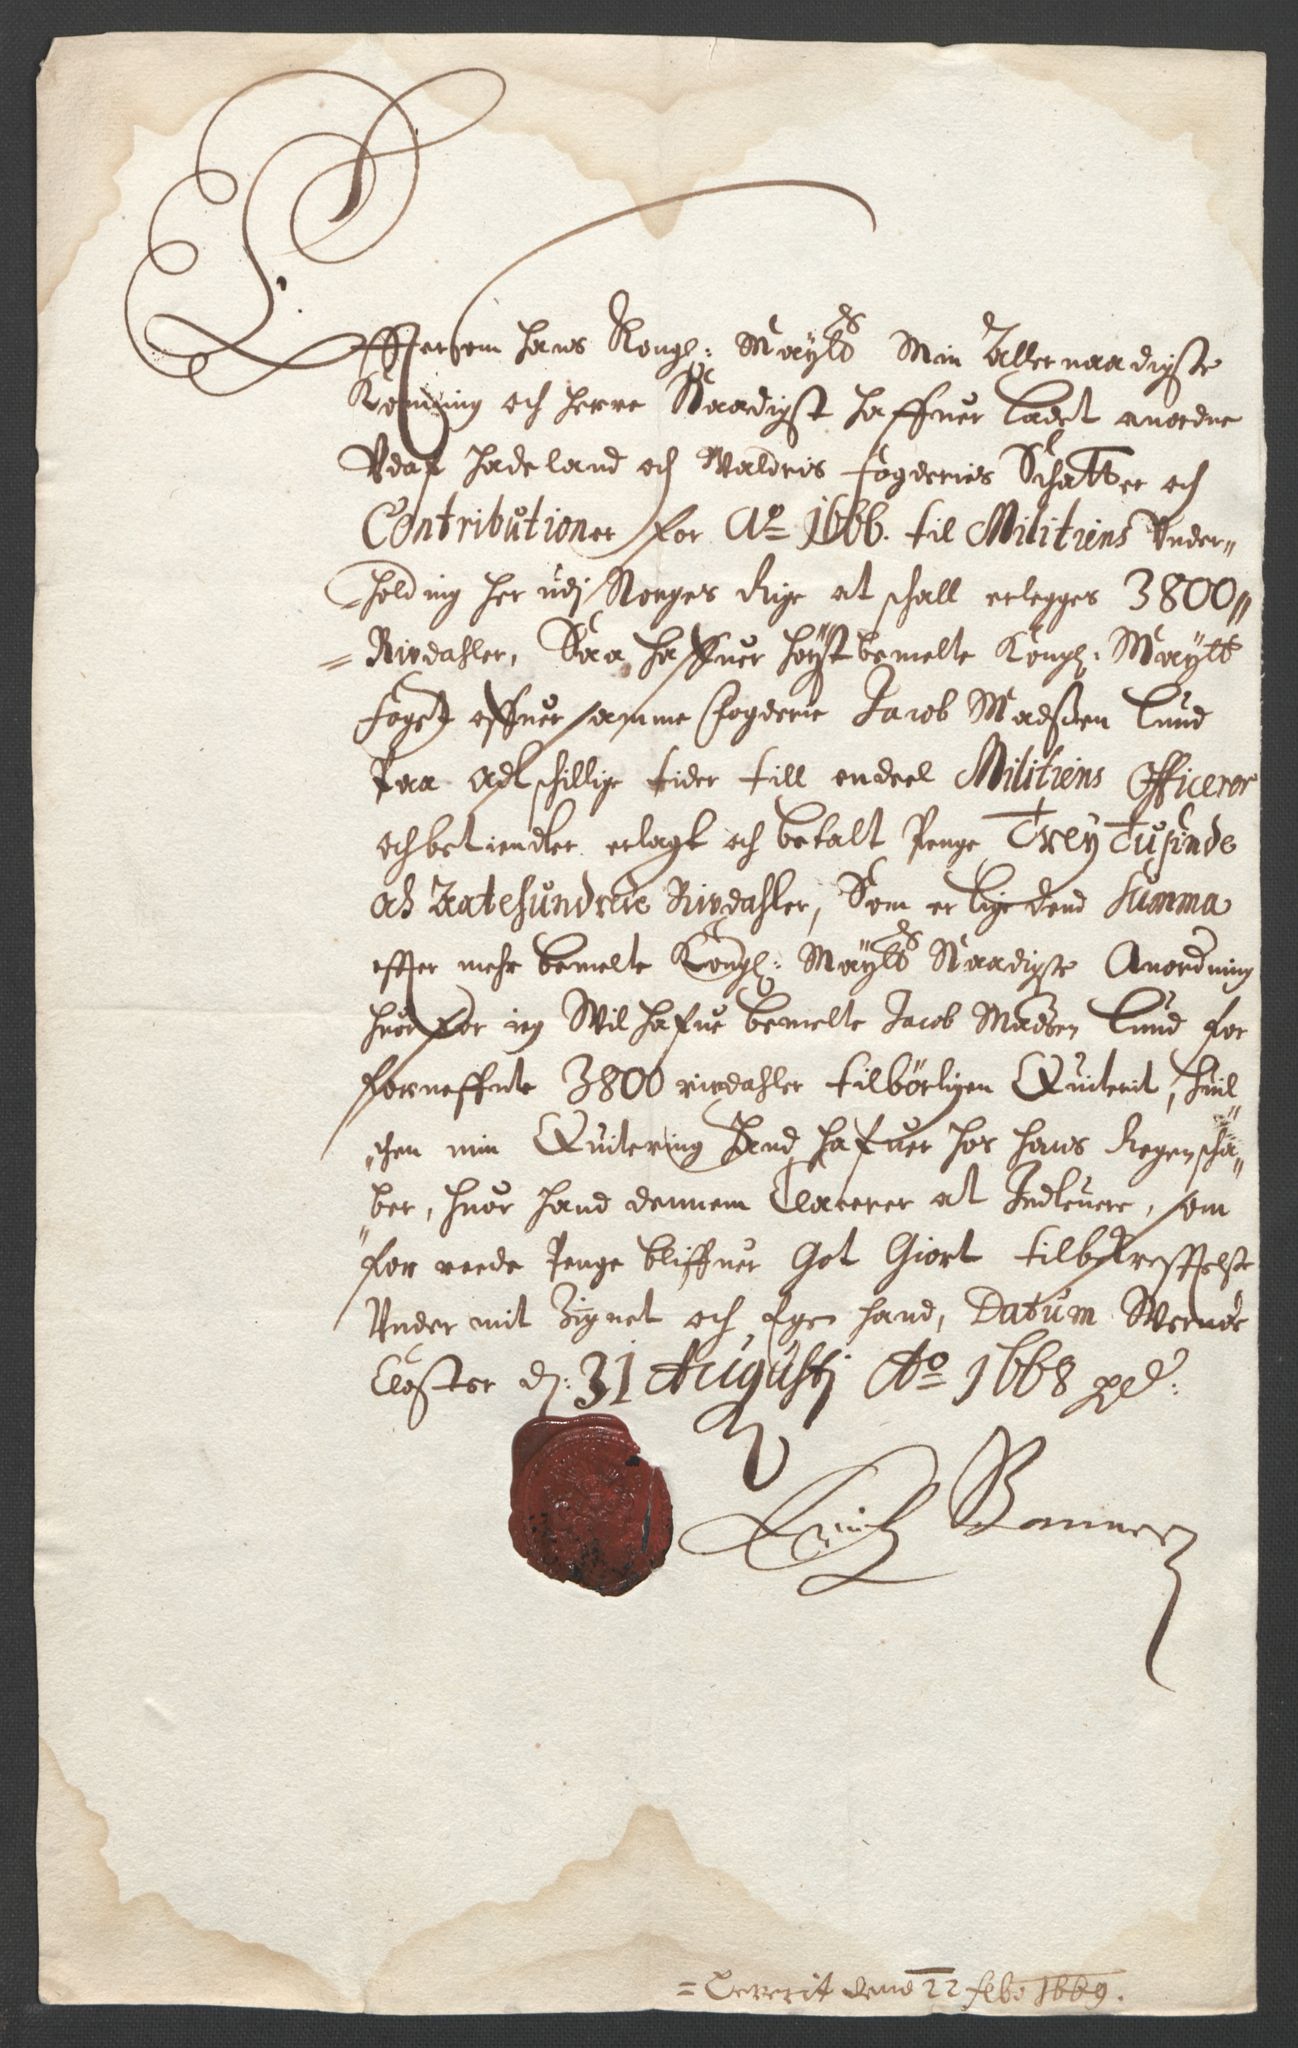 Effersom hans Kongl: Maytts Min Aller naadigste
Konning och Herre Naadigst haffuer ladet anordne
Vdaf Hadeland och Waldris fogderies Schatter och
Contributioner for Ao 1666. til Militiens Vnder„
=holding her udj Norges Rige at schall erlegges 3800„
=Rixdahler, Saa haffuer høystbemelte Kongl: Maytts
fogt offuer samme fogderie Jacob Madßen Lund
Paa adtschillige tider till endeel Militiens Officerer
och betiendter erlagt och betalt Penge Trey Tusinde
ock Aatehundrede Rixdahler, Som er lige dend Summa
effter mehr bemelte Kongl: Maytts Naadigste Anordning
huorfor ieg Wil hafue bemelte Jacob Madsen Lund for
forneffnte 3800 rixdahler tilbørligen Quiterit, huil„
„chen min Quitering hand hafuer hos hans Regenscha„
„ber, huor hand dennem Clarerer at Indleuere, som
for reede Penge bliffuer Got Giort til bekrefftelse
Vnder mit Zignet och Egen hand, Datum Wernøe
Closter dj: 31 Augustj Ao 1668
Erich Banner
=Leverit dend 22 feb: 1669.